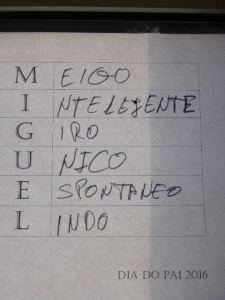 M EIGO
I NTELEJENTE
G IRO
U NICO
E SPONTANEO
L INDO
DIA DO PAI 2016